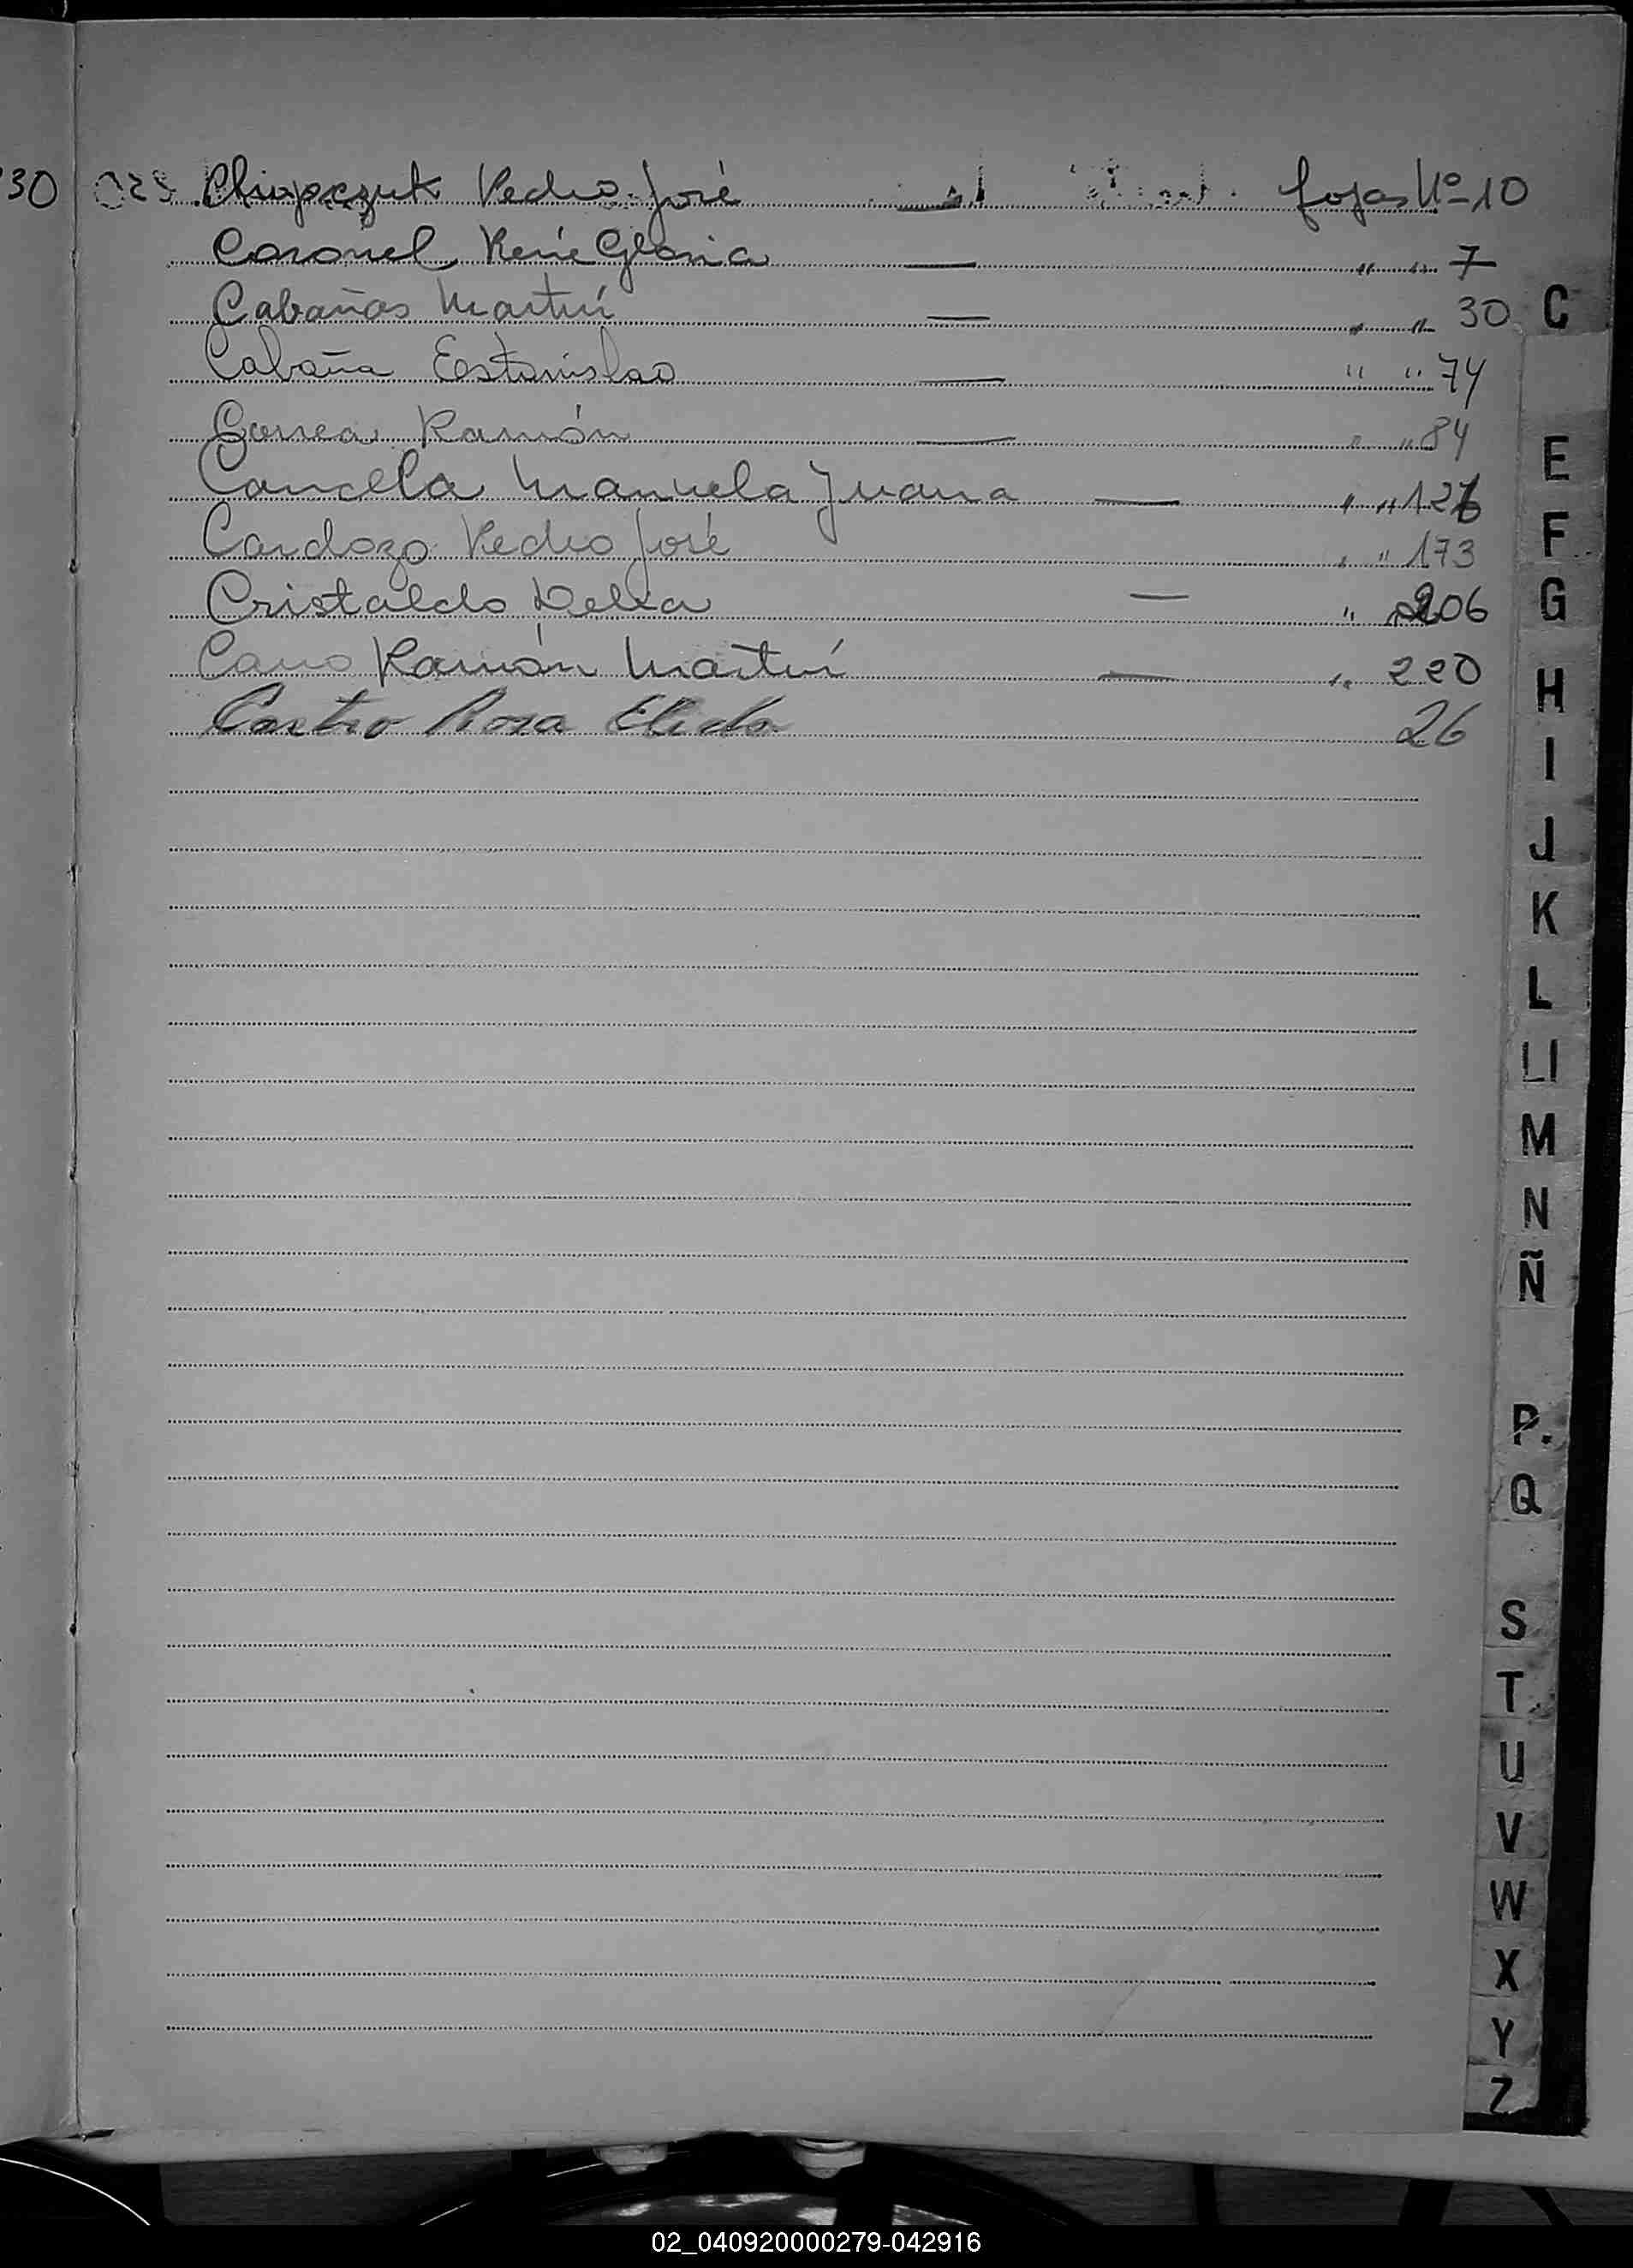 30 Chiopczuk Pedro José — fojas Nº 10
Coronel René Gloria — " " 7
Cabañas Martín — " " 30
Cabaña Estanislao — " " 74
Correa Ramón — " " 84
Cancela Manuela Juana — " " 126
Cardozo Pedro José " " 173
Cristaldo Delia — " 206
Cano Ramón Martín — " 220
Castro Rosa Elida 26
C
E
F
G
H
I
J
K
L
Ll
M
N
Ñ
P.
Q
S
T
U
V
W
X
Y
Z
02_040920000279-042916